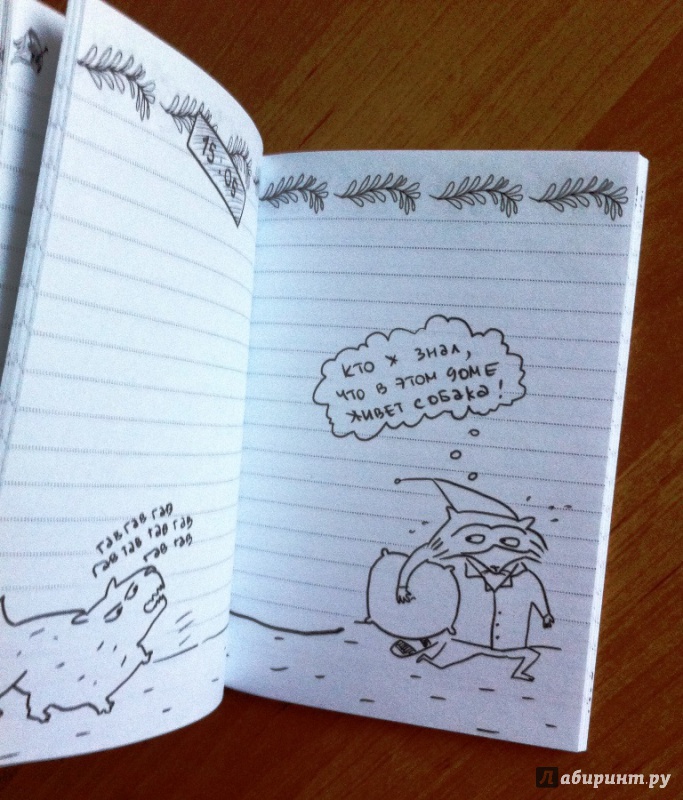 15.05
гав гав гав
гав гав гав гав
гав гав
кто ж знал,
что в этом доме
живет собака!
Лабиринт.ру